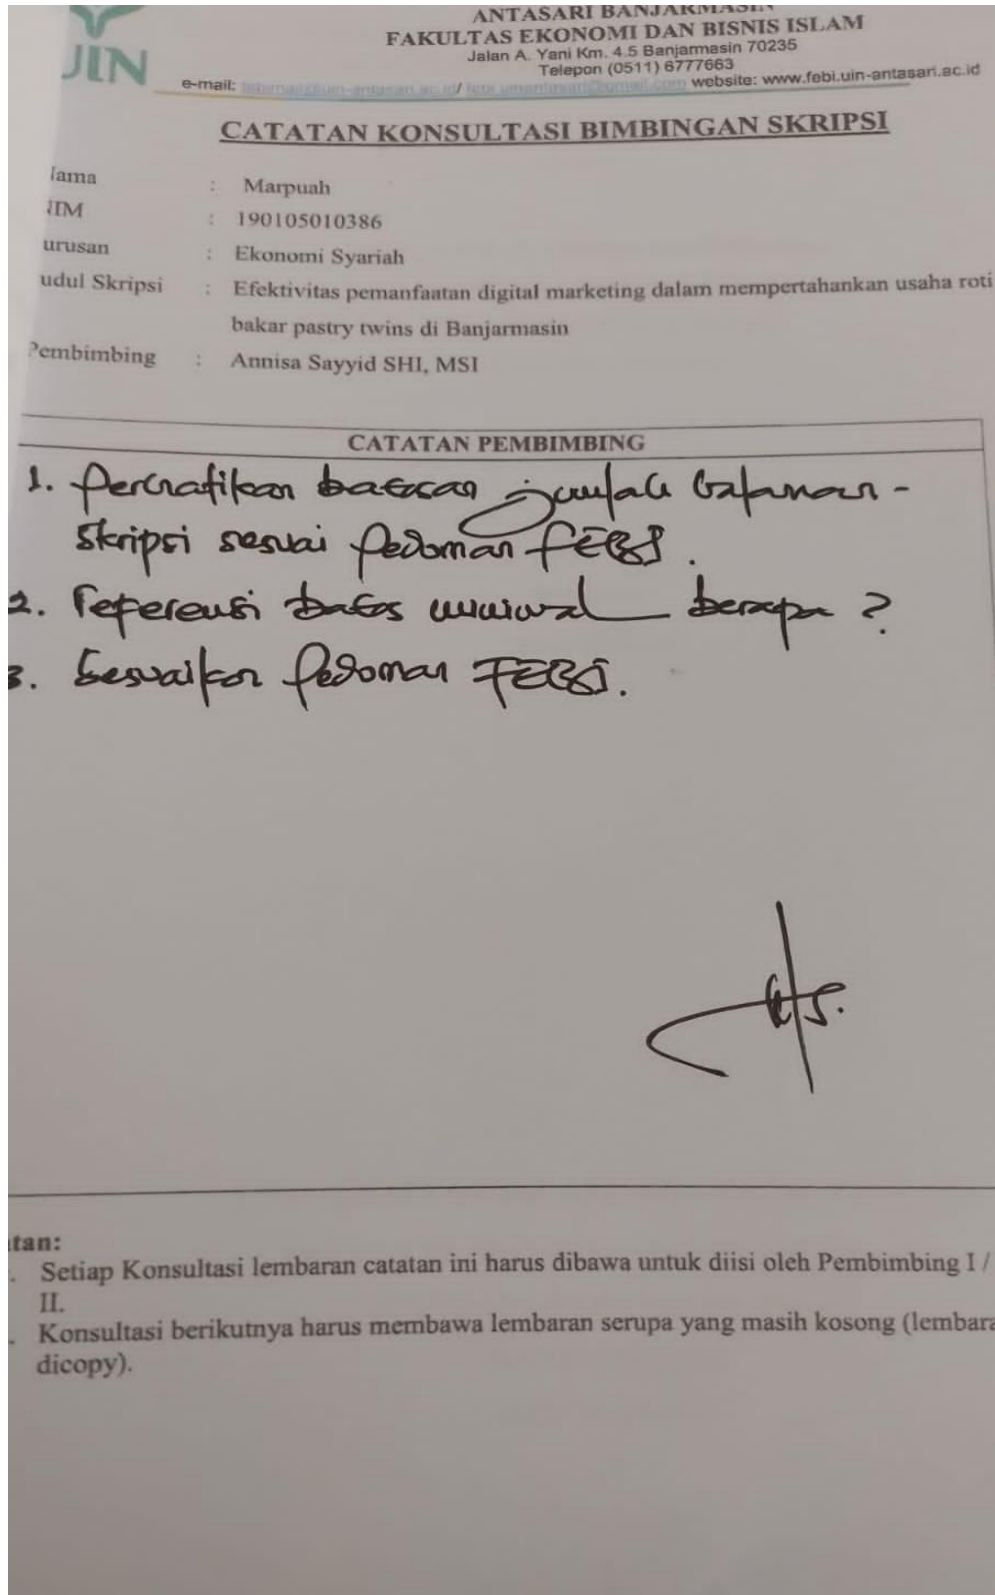 UIN
ANTASARI BANJARMASIN
FAKULTAS EKONOMI DAN BISNIS ISLAM
Jalan A. Yani Km. 4.5 Banjarmasin 70235
Telepon (0511) 6777663
e-mail: website: www.febi.uin-antasari.ac.id
CATATAN KONSULTASI BIMBINGAN SKRIPSI
Nama : Marpuah
NIM : 190105010386
urusan : Ekonomi Syariah
udul Skripsi : Efektivitas pemanfaatan digital marketing dalam mempertahankan usaha roti
bakar pastry twins di Banjarmasin
Pembimbing : Annisa Sayyid SHI, MSI
CATATAN PEMBIMBING
1. Perhatikan batasan jumlah halaman -
skripsi sesuai Pedoman FEBI.
2. referensi batas minimal berapa ?
3. Sesuaikan Pedoman FEBI.
tan:
. Setiap Konsultasi lembaran catatan ini harus dibawa untuk diisi oleh Pembimbing I /
II.
. Konsultasi berikutnya harus membawa lembaran serupa yang masih kosong (lembara
dicopy).